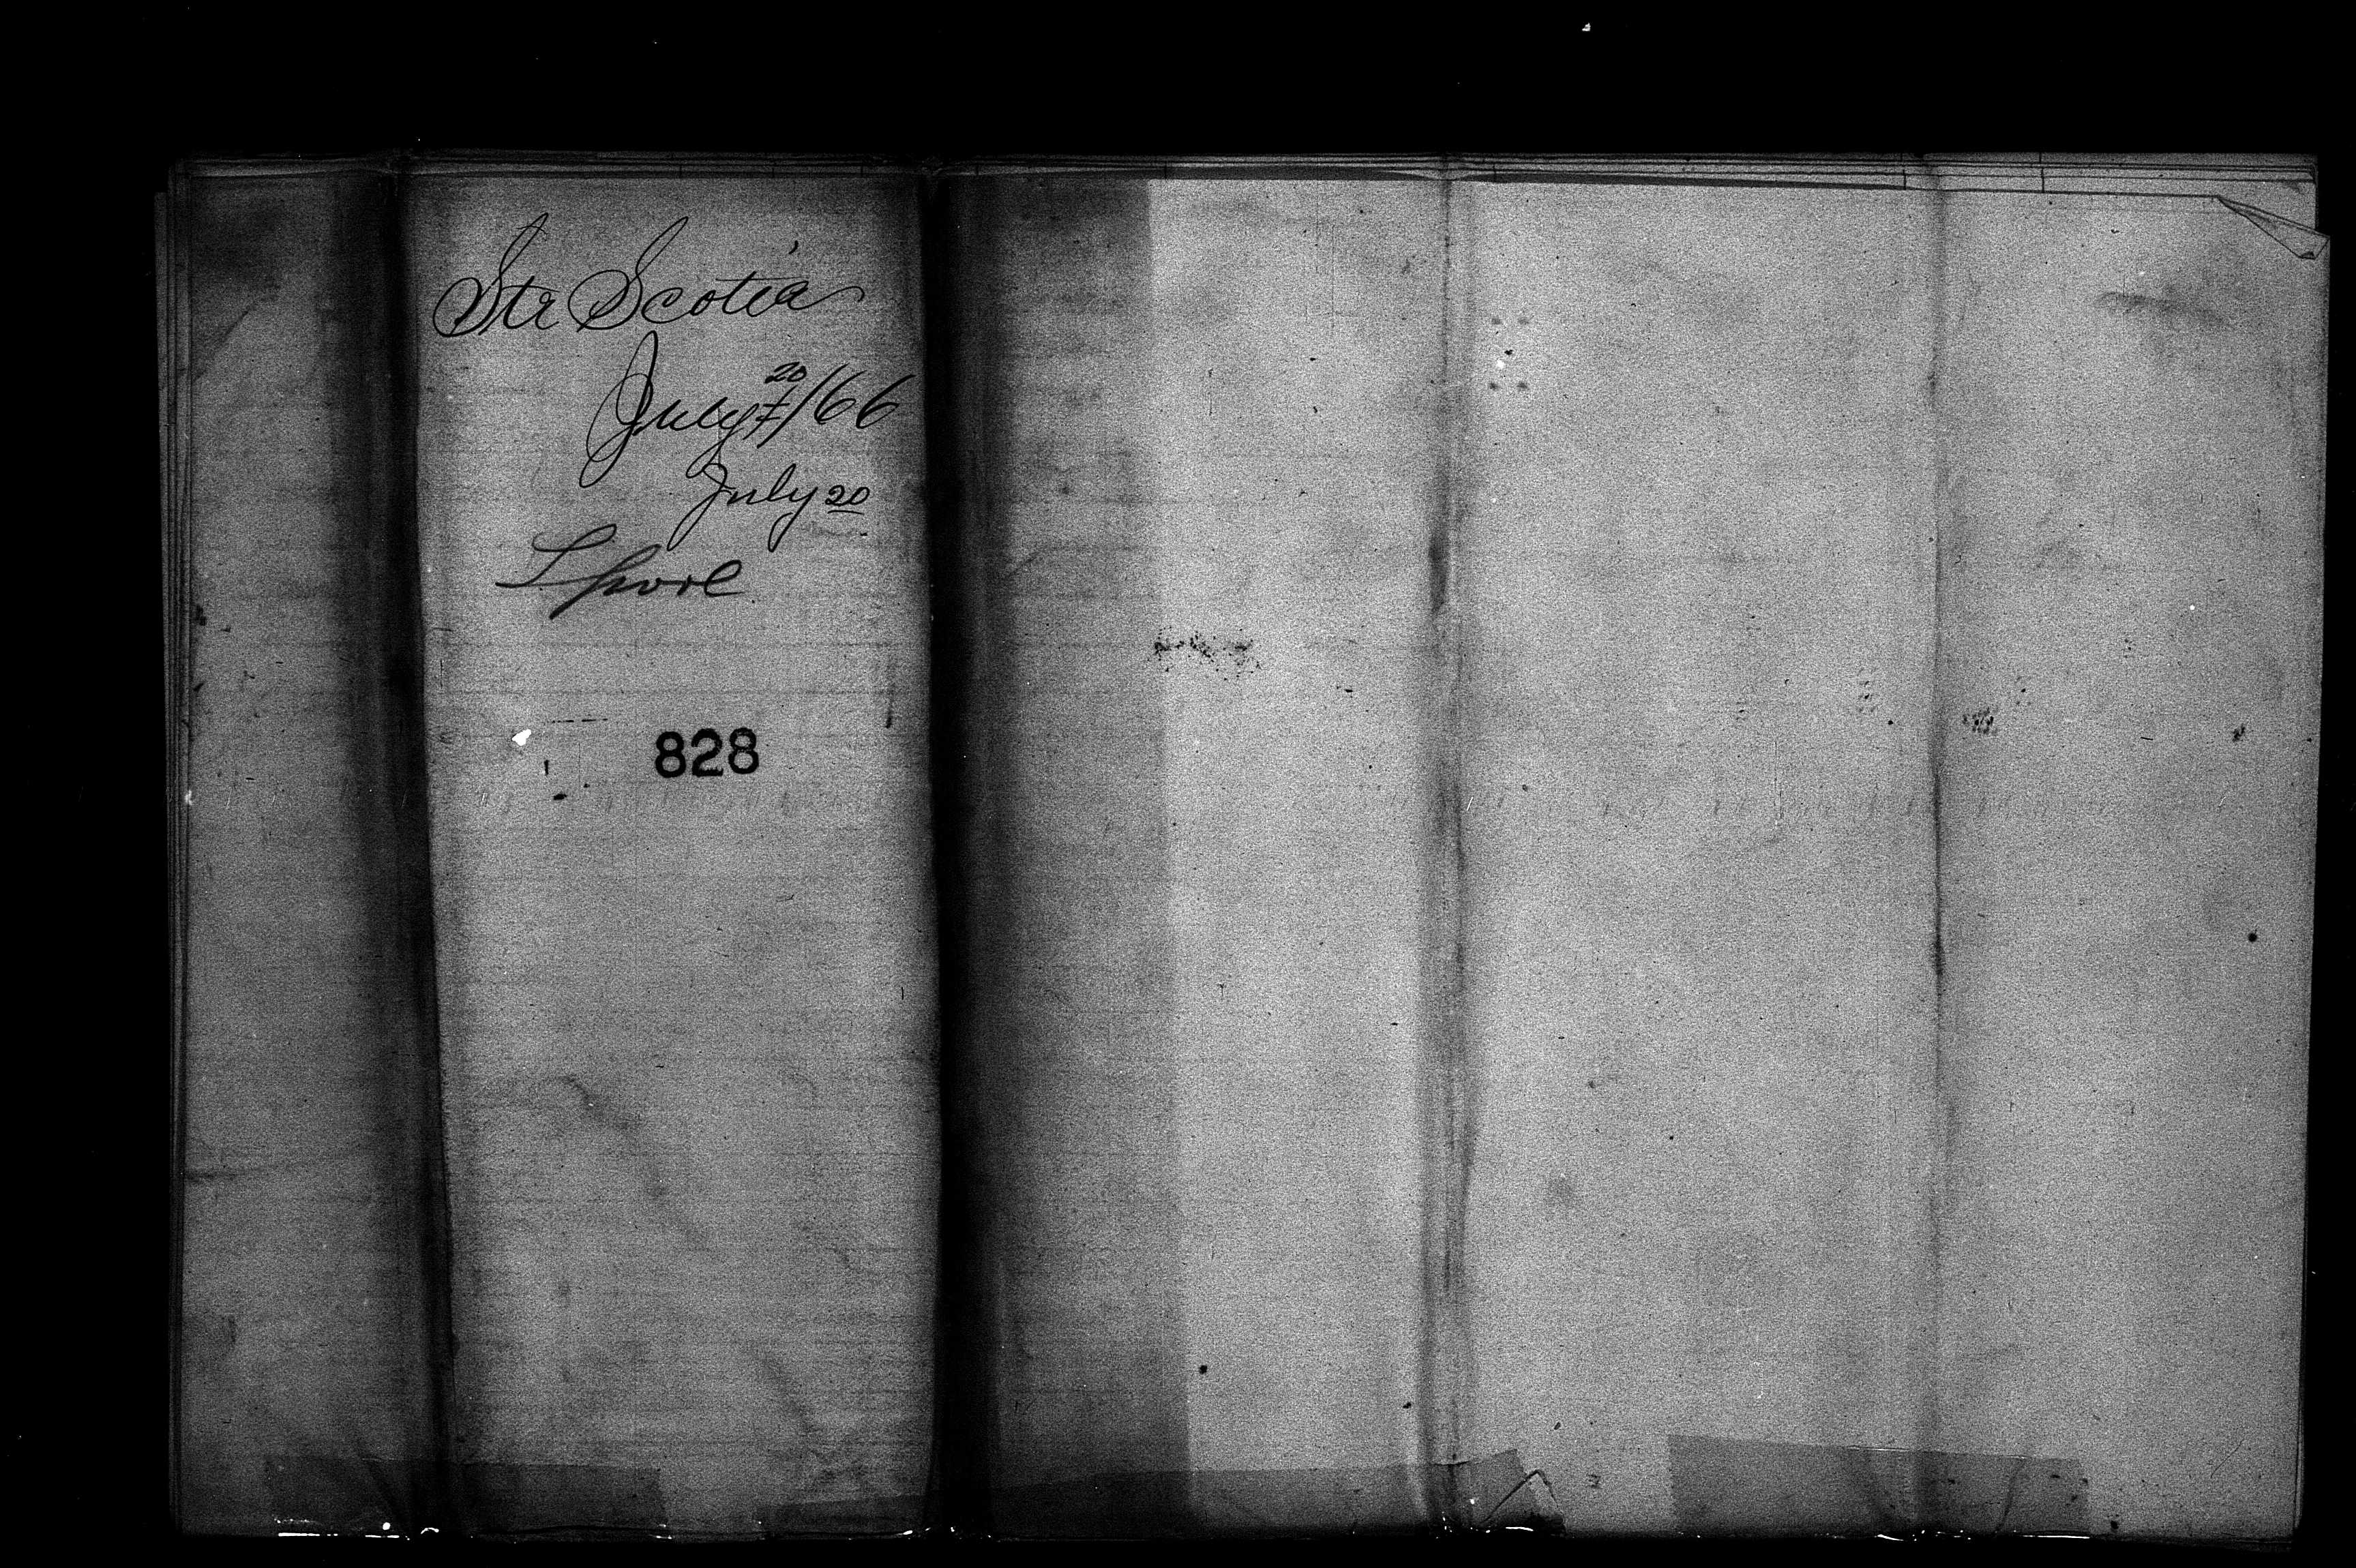 Str Scotia
July 20/66
July 20
L'pool
828